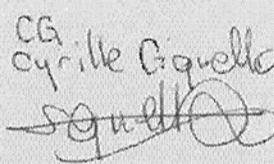 CG
Cyrille Giquello